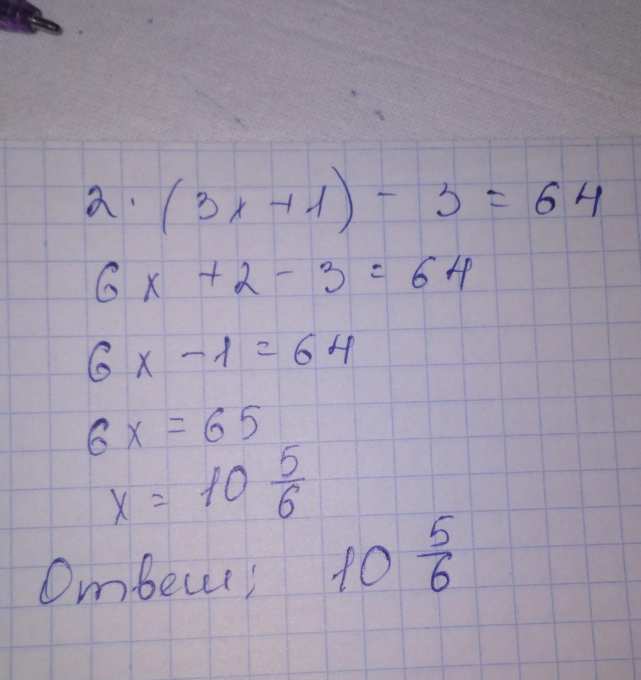 2 · (3x + 1) - 3 = 64
6x + 2 - 3 = 64
6x - 1 = 64
6x = 65
x = 10 5/6
Ответ: 10 5/6